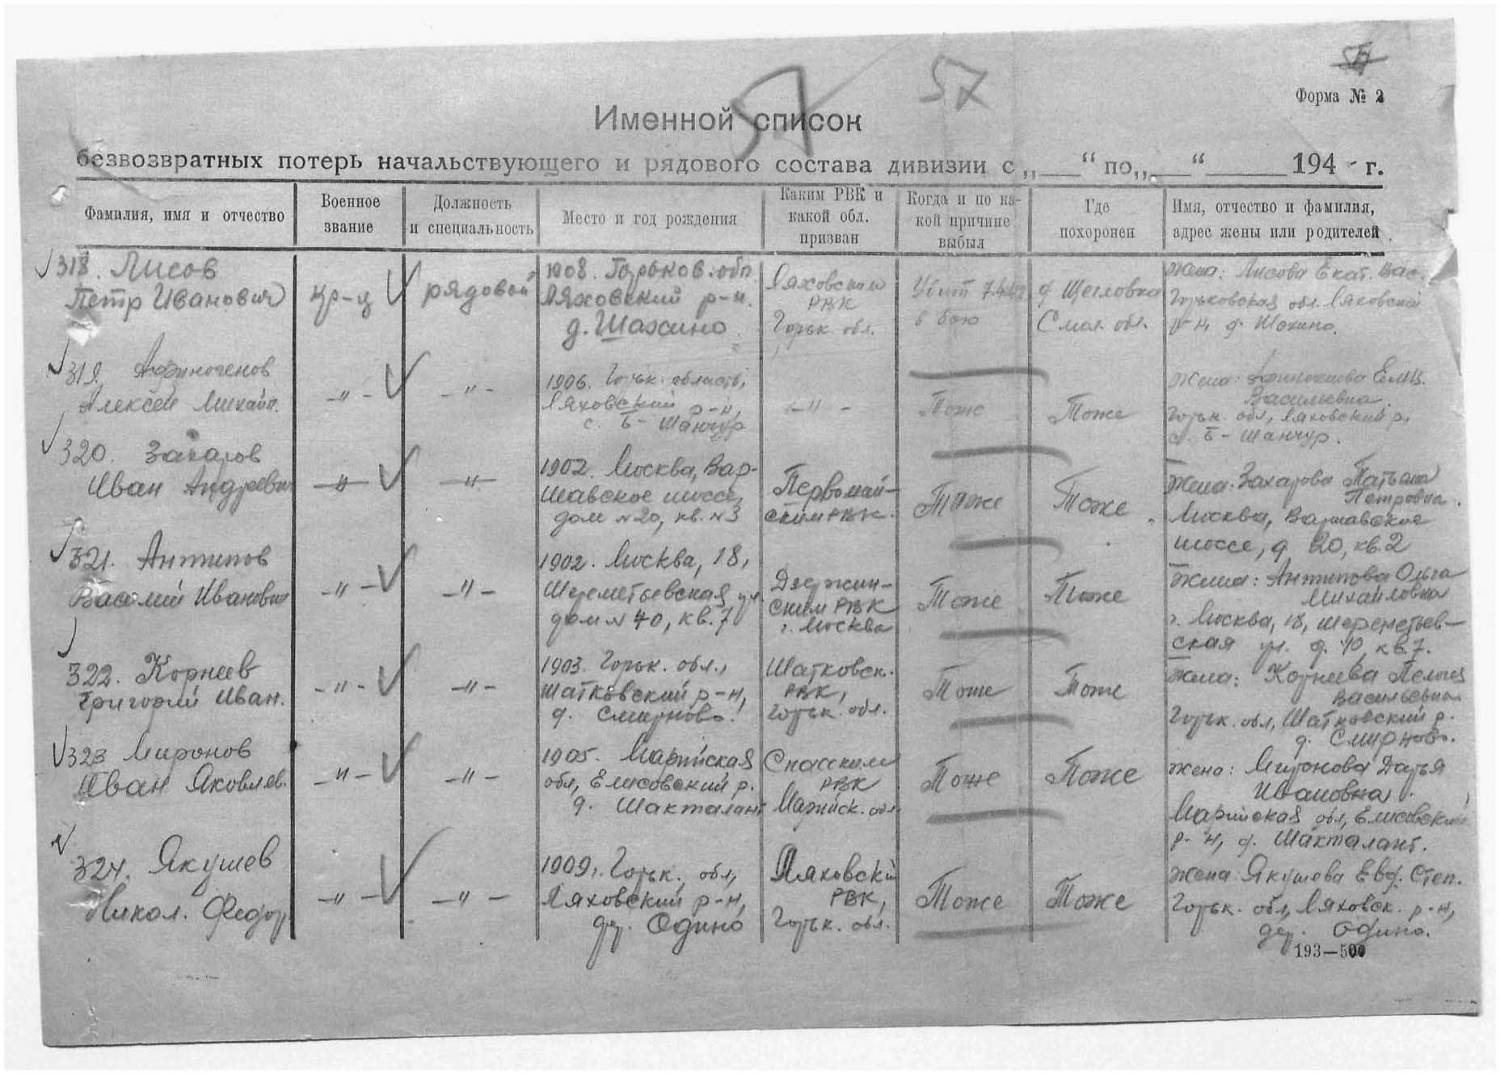 57
57
Форма № 2
Именной список
безвозвратных потерь начальствующего и рядового состава дивизии с „ “ по „ “ 194 г.
Фамилия, имя и отчество
Военное
звание
Должность
и специальность
Место и год рождения
Каким РВК и
какой обл.
призван
Когда и по ка-
кой причине
выбыл
Где
похоронен
Имя, отчество и фамилия,
адрес жены или родителей
318. Лисов
Петр Иванович
кр-ц
рядовой
1908. Горьков. обл
Ляховский р-н.
д. Шахино
Ляховским
РВК
Горьк. обл.
Убит
в бою
д Щегловка
Смол. обл.
жена: Лисова Екат. Вас.
Горьковская обл. Ляховский
р-н, д. Шохино.
319. Афиногенов
Алексей Михайл.
-"-
-"-
1906. Горьк. область,
Ляховский р-н,
с. Б-Шанчур
-"-
Тоже
Тоже
жена: Ел
Васильевна.
Горьк. обл, Ляховский р,
с. Б-Шанчур.
320. Захаров
Иван Андреевич
-"-
-"-
1902. Москва, Вар-
шавское шоссе,
дом №20, кв. №3
Первомай-
ским РВК.
Тоже
Тоже
жена: Захарова Татьяна
Петровна.
Москва, Варшавское
шоссе, д 20, кв. 2
321. Антипов
Василий Иванович
-"-
-"-
1902. Москва, 18,
Шереметьевская ул
дом № 40, кв. 7
Дзержин-
ским РВК
г. Москва
Тоже
Тоже
жена: Антипова Ольга
Михайловна
г. Москва, 18, Шереметьев-
ская ул. д. 40, кв. 7.
322. Корнеев
Григорий Иван.
-"-
-"-
1903. Горьк. обл.,
Шатковский р-н,
д. Смирново.
Шатковск.
РВК,
Горьк. обл.
Тоже
Тоже
жена: Корнеева
Васильевна
Горьк. обл, Шатковский р.
д. Смирново.
323 Миронов
Иван Яковлев.
-"-
-"-
1905. Марийская
обл, Елисовский р.
д. Шакталант
Спасским
РВК
Марийск. обл
Тоже
Тоже
жена: Миронова Дарья
Ивановна.
Марийская обл, Елисовский
р-н, д. Шакталант.
324. Якушев
Никол. Федор
-"-
-"-
1909. Горьк. обл,
Ляховский р-н,
дер. Одино
Ляховский
РВК,
Горьк. обл.
Тоже
Тоже
жена: Якушева Евд. Степ.
Горьк. обл, Ляховск. р-н,
дер. Одино.
193—500